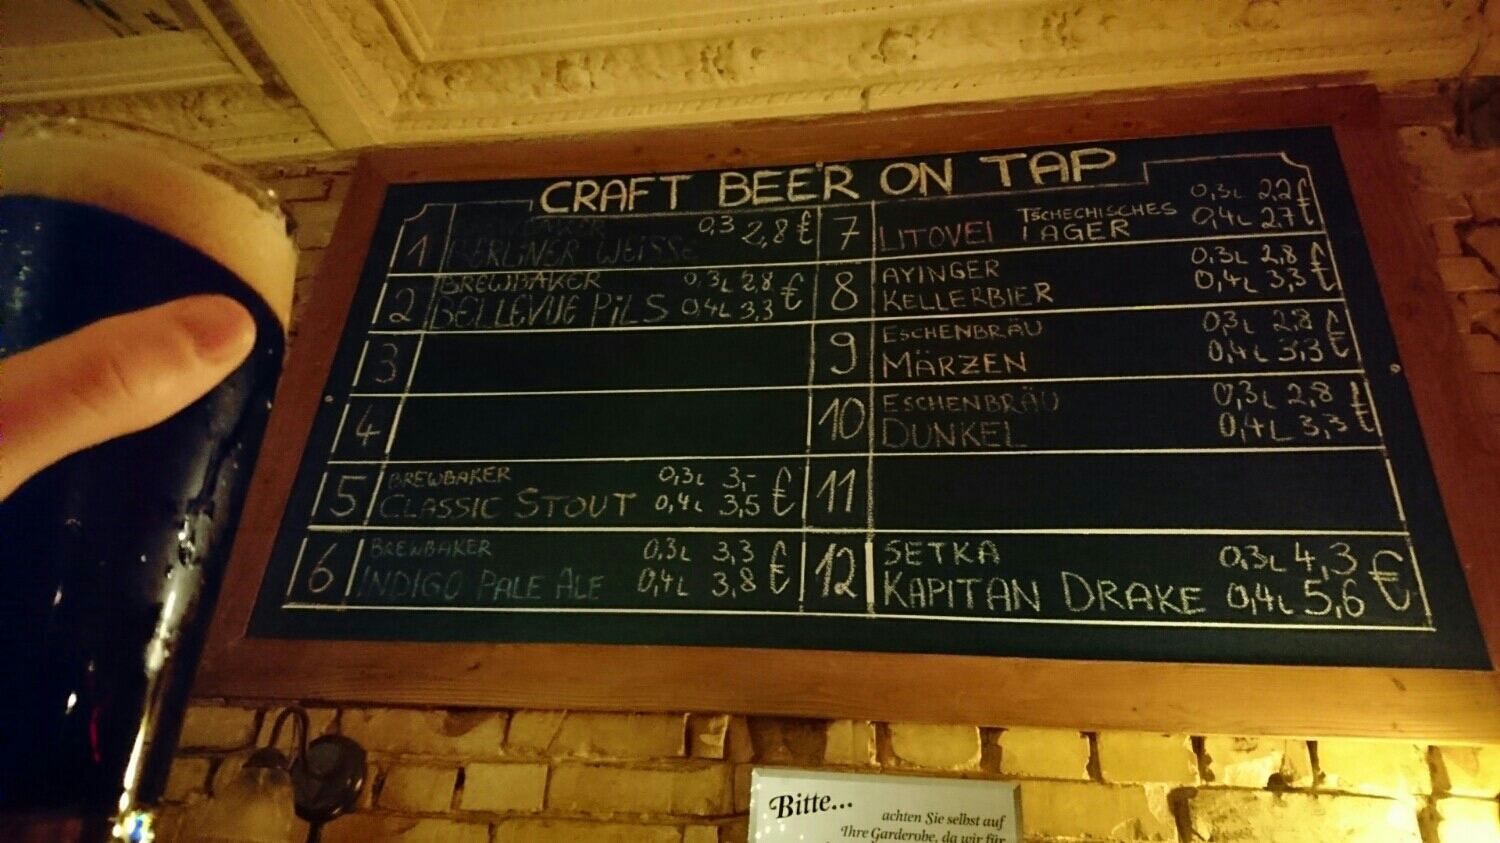 CRAFT BEER ON TAP
1 BERLINER WEISSE 0,3 2,8€
2 BREWBAKER 0,3L 2,8 €
BELLEVUE PILS 0,4L 3,3
3
4
5 BREWBAKER 0,3L 3,- €
CLASSIC STOUT 0,4L 3,5
6 BREWBAKER 0,3L 3,3 €
INDIGO PALE ALE 0,4L 3,8
7 LITOVEL TSCHECHISCHES 0,3L 2,2 €
LAGER 0,4L 2,7
8 AYINGER 0,3L 2,8 €
KELLERBIER 0,4L 3,3
9 ESCHENBRÄU 0,3L 2,8 €
MÄRZEN 0,4L 3,3
10 ESCHENBRÄU 0,3L 2,8 €
DUNKEL 0,4L 3,3
11
12 SETKA 0,3L 4,3 €
KAPITAN DRAKE 0,4L 5,6
Bitte...
achten Sie selbst auf
Ihre Garderobe, da wir für